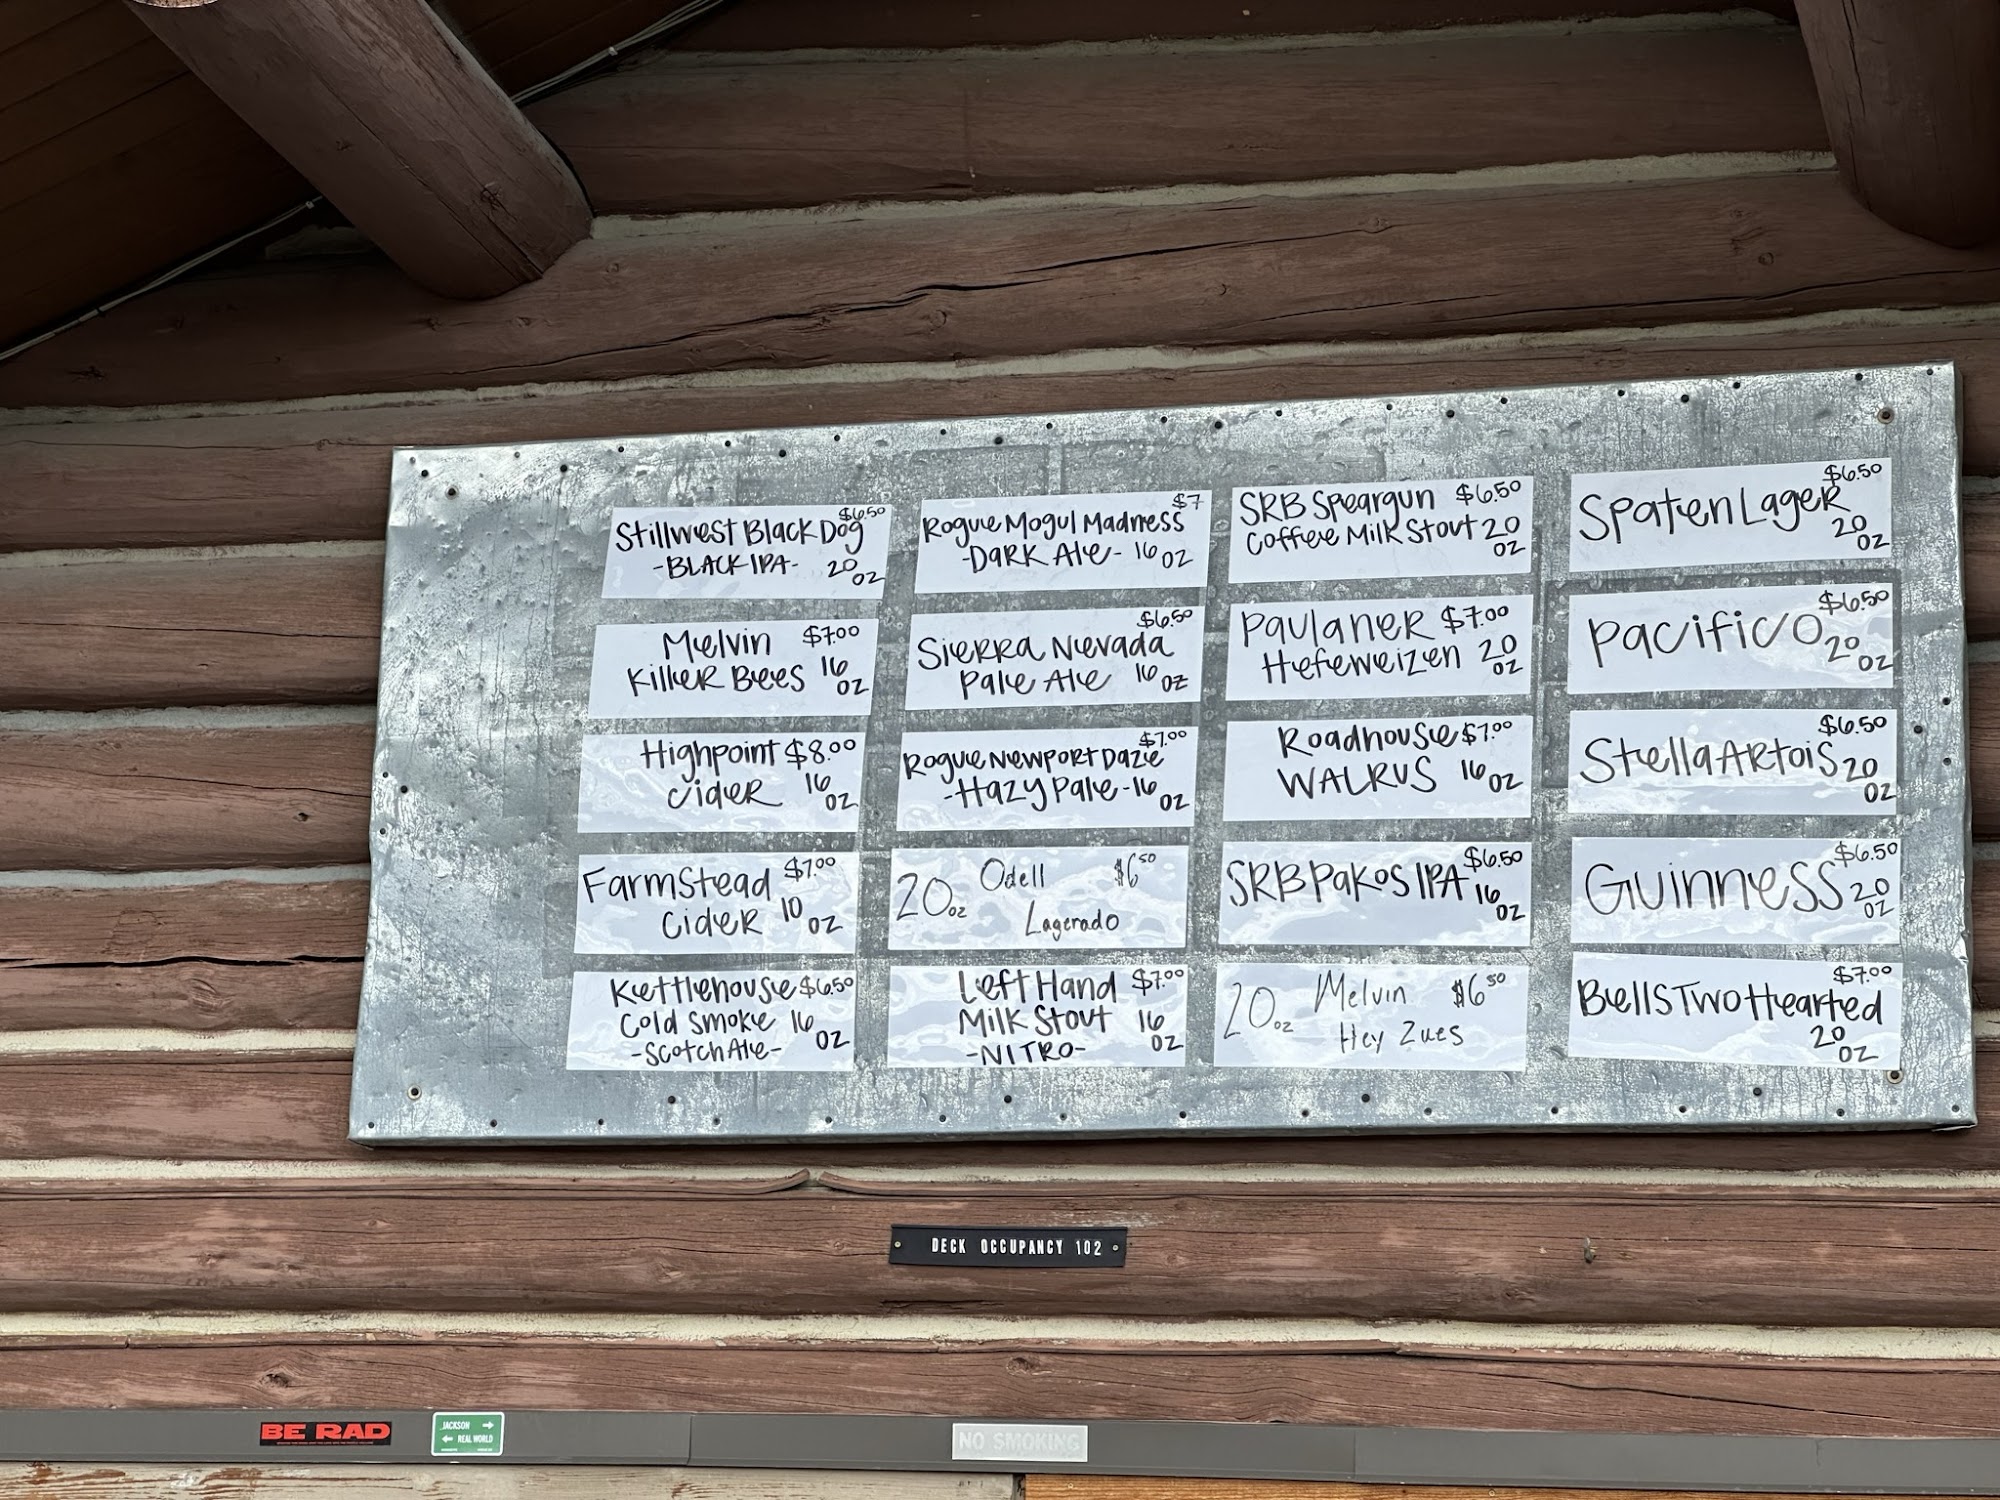 Stillwest Black Dog $6.50
-BLACK IPA- 20 OZ
Melvin $7.00
Killer Bees 16 OZ
Highpoint $8.00
Cider 16 OZ
Farmstead $7.00
Cider 10 OZ
Kettlehouse $6.50
Cold Smoke 16 OZ
-Scotch Ale-
Rogue Mogul Madness $7
-Dark Ale- 16 OZ
Sierra Nevada $6.50
Pale Ale 16 OZ
Rogue Newport Dazie $7.00
-Hazy Pale- 16 OZ
20 oz Odell $6.50
Lagerado
Left Hand $7.00
Milk Stout 16 OZ
-NITRO-
SRB Speargun $6.50
Coffee Milk Stout 20 OZ
Paulaner $7.00
Hefeweizen 20 OZ
Roadhouse $7.00
WALRUS 16 OZ
SRB Pakos IPA $6.50
16 OZ
20 oz Melvin $6.50
Hey Zues
Spaten Lager $6.50
20 OZ
Pacifico $6.50
20 OZ
Stella Artois $6.50
20 OZ
Guinness $6.50
20 OZ
Bells Two Hearted $7.00
20 OZ
DECK OCCUPANCY 102
BE RAD
JACKSON →
← REAL WORLD
NO SMOKING